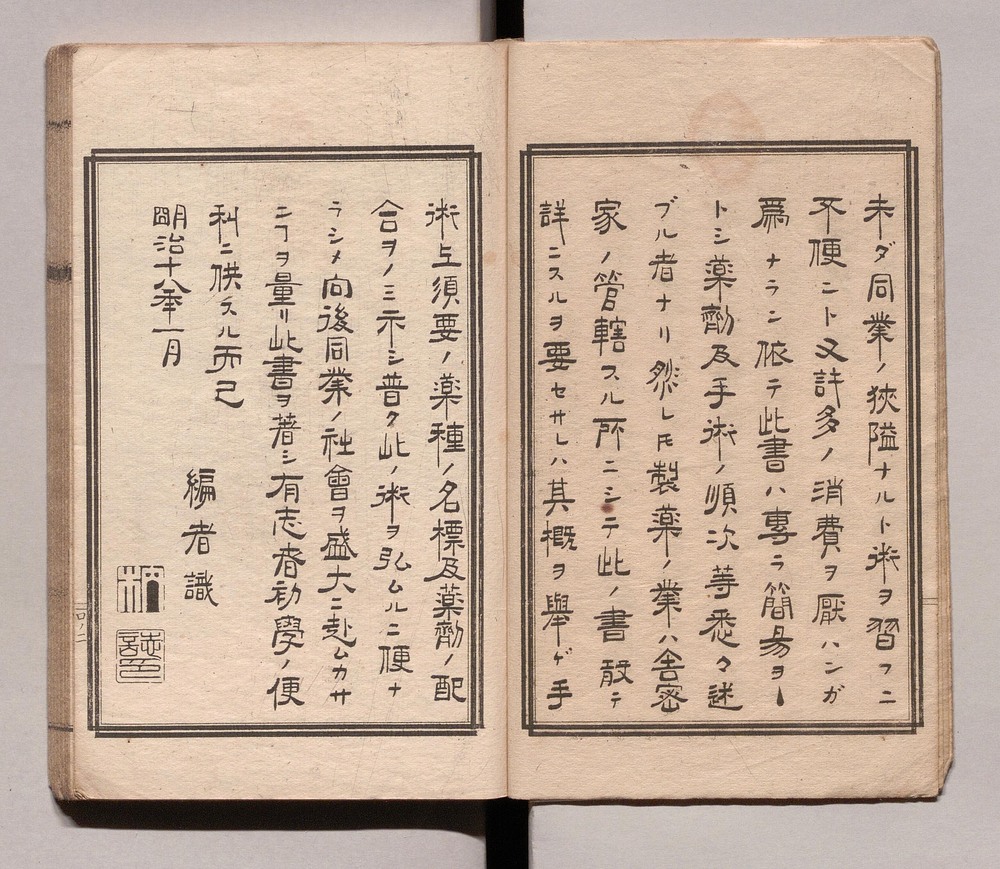 未ダ同業ノ狹隘ナルト術ヲ習フニ
不便ニト又許多ノ消費ヲ厭ハンガ
爲ナラン依テ此書ハ專ラ簡易ヲ一
トシ薬劑及手術ノ順次等悉ク述
ブル者ナリ然レ𪜈製薬ノ業ハ舎密
家ノ管轄スル所ニシテ此ノ書敢テ
詳ニスルヲ要セサレハ其概ヲ舉ゲ手
術上須要ノ薬種ノ名標及薬劑ノ配
合ヲノミ示シ普ク此ノ術ヲ弘ムルニ便ナ
ラシメ向後同業ノ社會ヲ盛大ニ赴ムカサ
ニヿヲ量リ此書ヲ著シ有志者初學ノ便
利ニ供スル而已
明治十八年一月
編者識